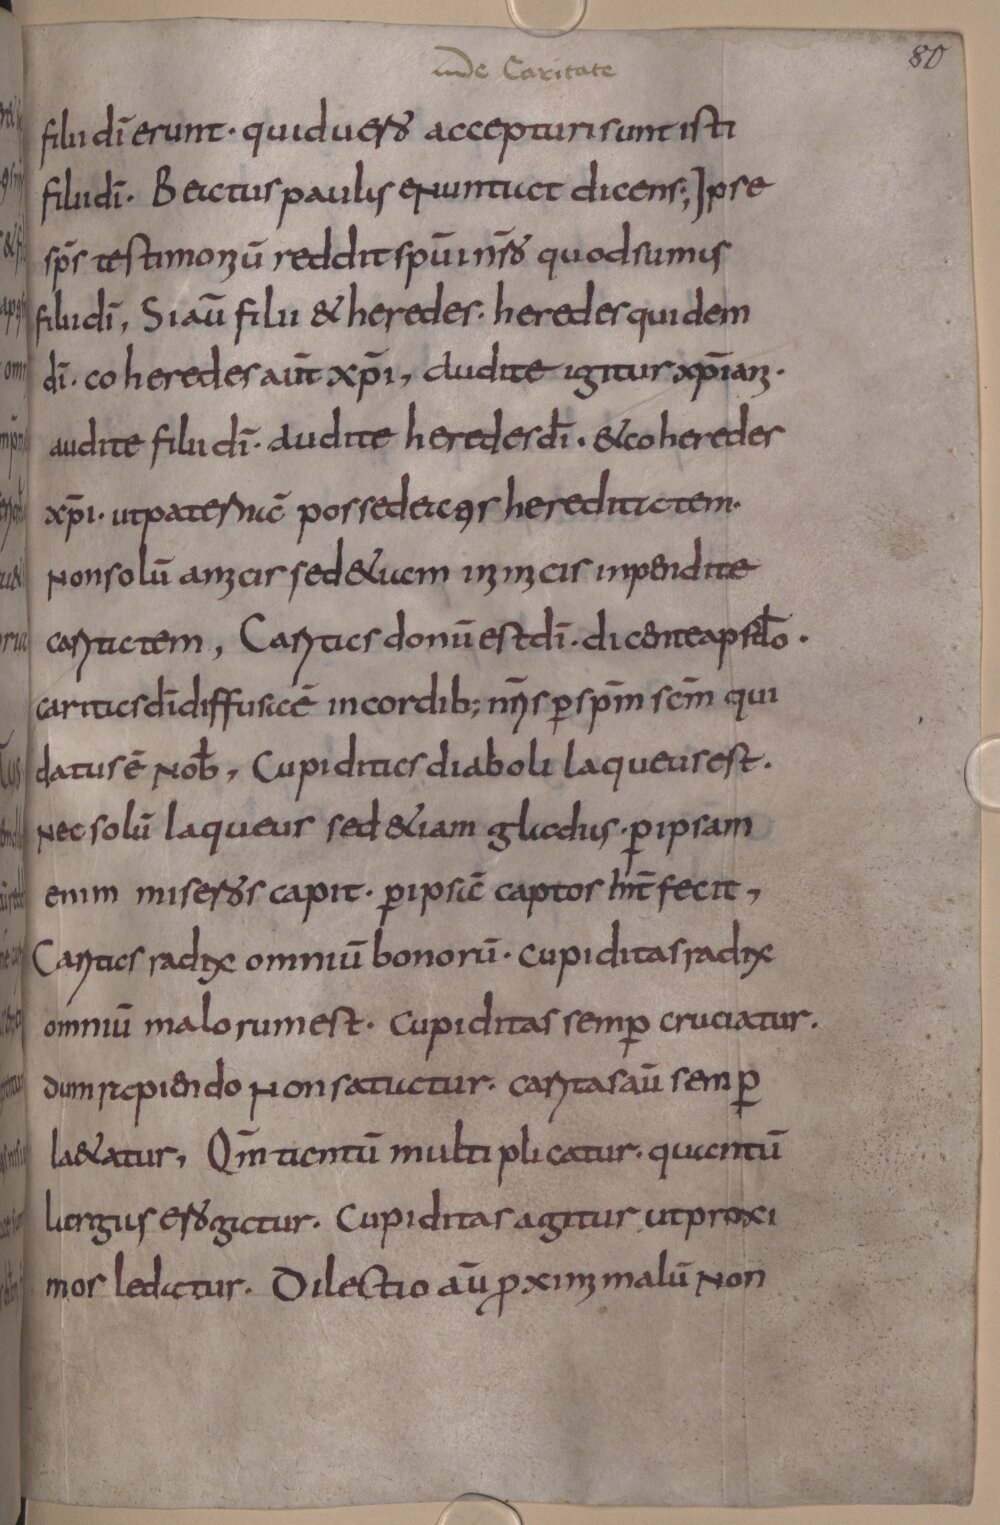 de Caritate
80
filii dī erunt · quid uero accepturi sunt isti
filii dī · Beatus paulus enuntiat dicens; Ipse
sp̄s testimoniū reddit spūi nr̄o quod sumus
filii dī, Si aū filii & heredes · heredes quidem
dī · coheredes aūt xp̄i, Audite igitur xp̄iani ·
audite filii dī · Audite heredes dī · & coheredes
xp̄i · ut paternā possedeatis hereditatem ·
Non solū amicis sed & uem inimicis inpendite
caritatem, Caritas donū est dī · dicente apsto̅lo ·
caritas dī diffusa ē in cordib; nr̄is p̱ sp̄m scm̄ qui
datus ē nob̄, Cupiditas diaboli laqueus est ·
Nec solū laqueus sed &iam gladius · p̱ ipsam
enim miseros capit · p̱ ipsā captos int̄fecit,
Caritas radix omniū bonorū · cupiditas radix
omniū malorum est · cupiditas semp̱ cruciatur ·
dum rapiendo Non satiatur · caritas aū semp̱
la&atur, Qm̄ tantū multiplicatur · quantū
largius erogatur · Cupiditas agitur ut proxi
mos ledatur · Dilectio aū ꝓximi malū Non